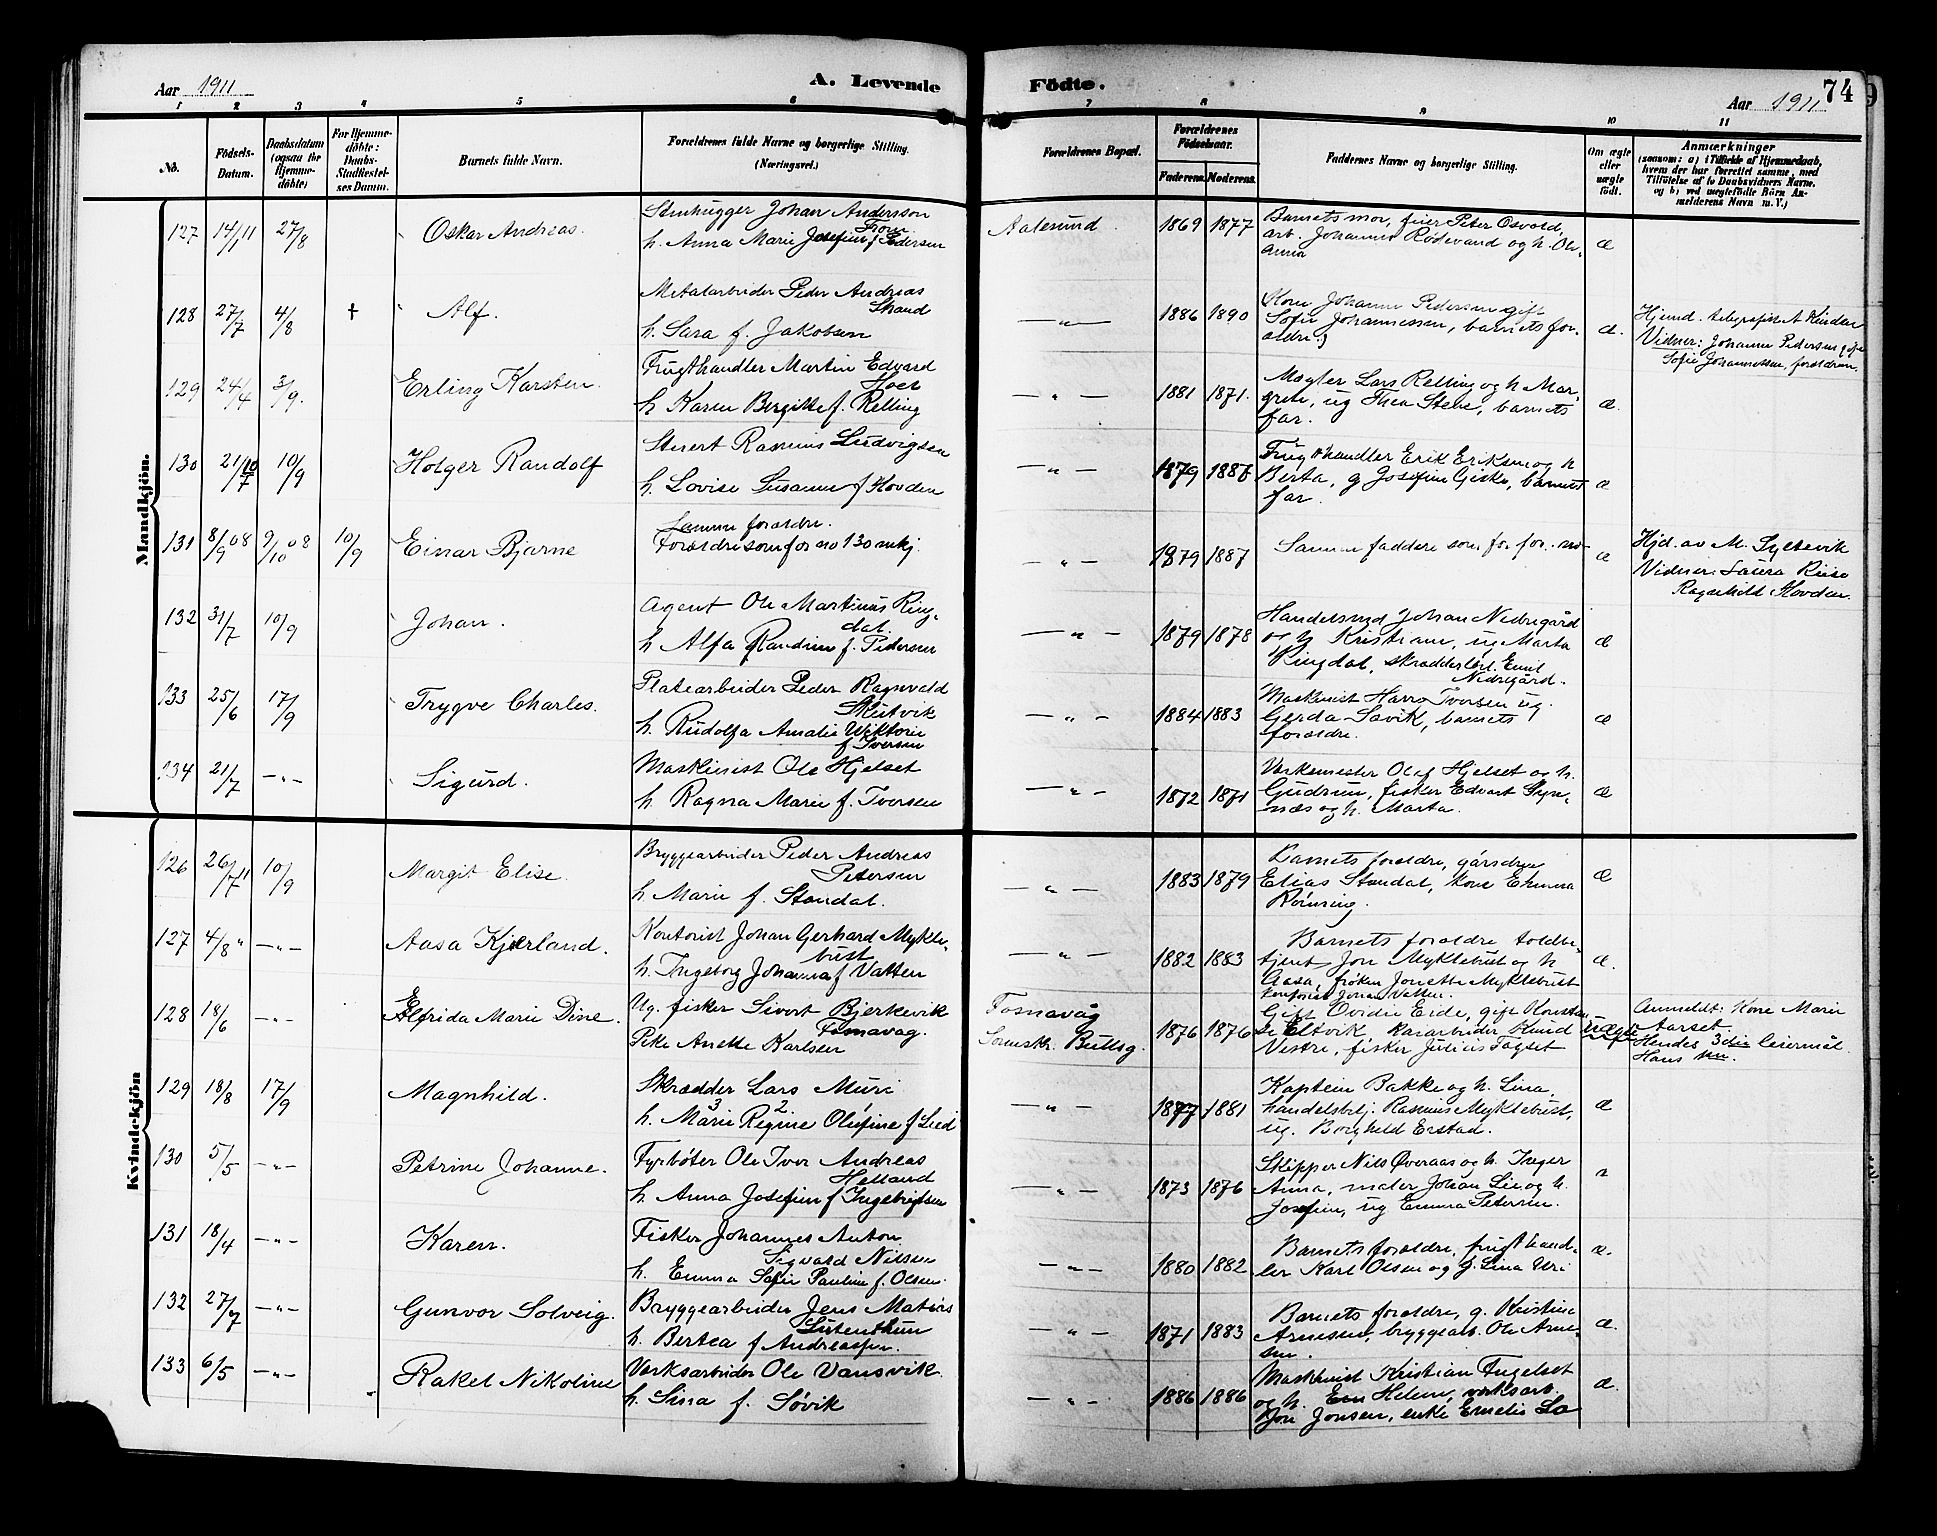 Aar 1911
A. Levende
Födte.
Aar 1911
74
1 2 3 4 5 6 7 8 9 10 11
No.
Födsels-
Datum.
Daabsdatum
(ogsaa for
Hjemme-
döbte)
For Hjemme-
döbte:
Daabs-
Stadfæstel-
ses Datum.
Barnets fulde Navn.
Forældrenes fulde Navne og borgerlige Stilling.
(Næringsvei.)
Forældrenes Bopæl.
Forældrenes
Födselsaar.
Faderens. Moderens.
Faddernes Navne og borgerlige Stilling.
Om ægte
eller
uægte
født.
Anmærkninger
(saasom: a) i Tilfælde af Hjemmedaab,
hvem der har forrettet samme, med
Tilföielse af to Daabsvidners Navne.
og b) ved uægtefödte Börn An-
melderens Navn m. V.)
Mandkjön.
127 14/1 11 27/8 Oskar Andreas.
Stenhugger Johan Andersson
From
h. Anna Marie Josefine f. Pedersen
Aalesund 1869 1877
Barnets mor, feier Peter Osvald,
arb. Johannes Rødevand og h. Ole-
Anna
æ
128 27/7 4/8 + Alf.
Metalarbeider Peder Andreas
Strand
h. Sara f. Jakobsen
—„— 1886 1890
Kone Johanne Pedersen gift
Sofie Johannessen, barnets for-
ældre
æ.
Hjemd. telegrafist A
Vidner: Johanne Pedersen g
Sofie Johannessen, forældrene
129 24/4 3/9. Erling Karsten.
Frugthandler Martin Edvard
Hoel
h Karen Bergitte f. Relling
—„— 1881 1871.
Mægler Lars Relling og h Mar-
grete, ug Thea Stene, barnets
far.
æ.
130 21/7 10 10/9 Holger Randolf
Stuert Rasmus Ludvigsen
h. Lovise Susanne f Hovden
—„— 1879 1887
Frugthandler Erik Eriksen og h
Berta, g Josefine Giske, barnets
far.
æ
131 8/9 08 9/10 08 10/9 Einar Bjarne
Samme forældre.
Forældre som for no 130 mkj
—„— 1879 1887
Samme faddere som for for. no
æ
Hjd. av M. Syltevik
Vidner: Laura Riise
Ragnhild Hovden.
132 31/7 10/9 Johan.
Agent Ole Martinus Ring-
dal.
h Alfa Randine f. Pedersen
—„— 1879 1878
Handelsmd Johan Nedregård
og h Kristiane, ug Marta
Ringdal, skrædderlærl. Emil
Nedregård.
æ
133 25/6 17/9 Trygve Charles.
Platearbeider Peder Ragnvald
Slutvik
h. Rudolfa Amalie Viktorie
f Iversen
—„— 1884 1883
Maskinist Harro Iversen ug.
Gerda Savik, barnets
forældre.
æ
134 21/7 —„— Sigurd.
Maskinist Ole Hjelset
h. Ragna Marie f. Iversen
—„— 1872 1871
Værkmester Olaf Hjelset og h.
Gudrun, fisker Edvart Syn-
næs og h. Marta.
æ
Kvindekjön
126 26/7 11 10/9 Margit Elise.
Bryggearbeider Peder Andreas
Petersen
h Marie f. Standal.
—„— 1883 1879
Barnets forældre, gårdbr
Elias Standal, kone Emma
Rønning.
æ
127 4/8 „ —„— Aasa Kjærland.
Kontorist Johan Gerhard Mykle-
bust
h. Ingeborg Johanna f Vatten
—„— 1882 1883
Barnets forældre toldbe-
tjent Jon Myklebust og h
Aasa, frøken Jonette Myklebust
kontorist Johan Vatten.
æ.
128 18/6 —„— Elfrida Marie Dine.
Ug. fisker Sivert Bjerkevik
Fosnavag.
Pike Anette Karlsen
Fosnavåg
1876 1876
Gift Ovidia Eide, gift Konstan-
se Eltvik kaiarbeider Knud
Vestre, fisker Julius Tagset
uægte
Anmeldt: Kone Marie
Aarset.
Hendes 3die leiermål
Hans
129 18/8 17/9 Magnhild.
Skrædder Lars Muri
3 2
h. Marie Regine Olufine f Lied
—„— 1877 1881
Kaptein Bakke og h. Lina,
handelsbetj. Rasmus Myklebust,
ug. Borghild Erstad.
æ
130 5/5 —„— Petrine Johanne.
Fyrbøter Ole Iver Andreas
Helland
h. Anna Josefine f Ingebrigtsen
—„— 1873 1876
Skipper Nils Øveraas og h. Inger
Anna, maler Johan Lie og h.
Josefine, ug Emma Petersen.
131 18/4 —„— Karen.
Fisker Johannes Anton
Sigvald Nilsen
h. Emma Sofie Pauline f. Olsen.
—„— 1880 1882
Barnets forældre, frugthand-
ler Karl Olsen og g. Lina Uri
æ.
132 27/7 —„— Gunvor Solveig.
Bryggearbeider Jens Matias
h. Bertea f Andreassen.
—„— 1871 1883
Barnets forældre, g. Kristine
Arnessen, bryggearb. Ole Arne-
sen.
æ.
133 6/5 —„— Rakel Nikoline
Værksarbeider Ole Vansvik.
h. Lina f. Søvik
—„— 1886 1886
Maskinist Kristian Fugelset
og h. Helene, værksarb.
Jon Jonsen, enke Emelie
æ.